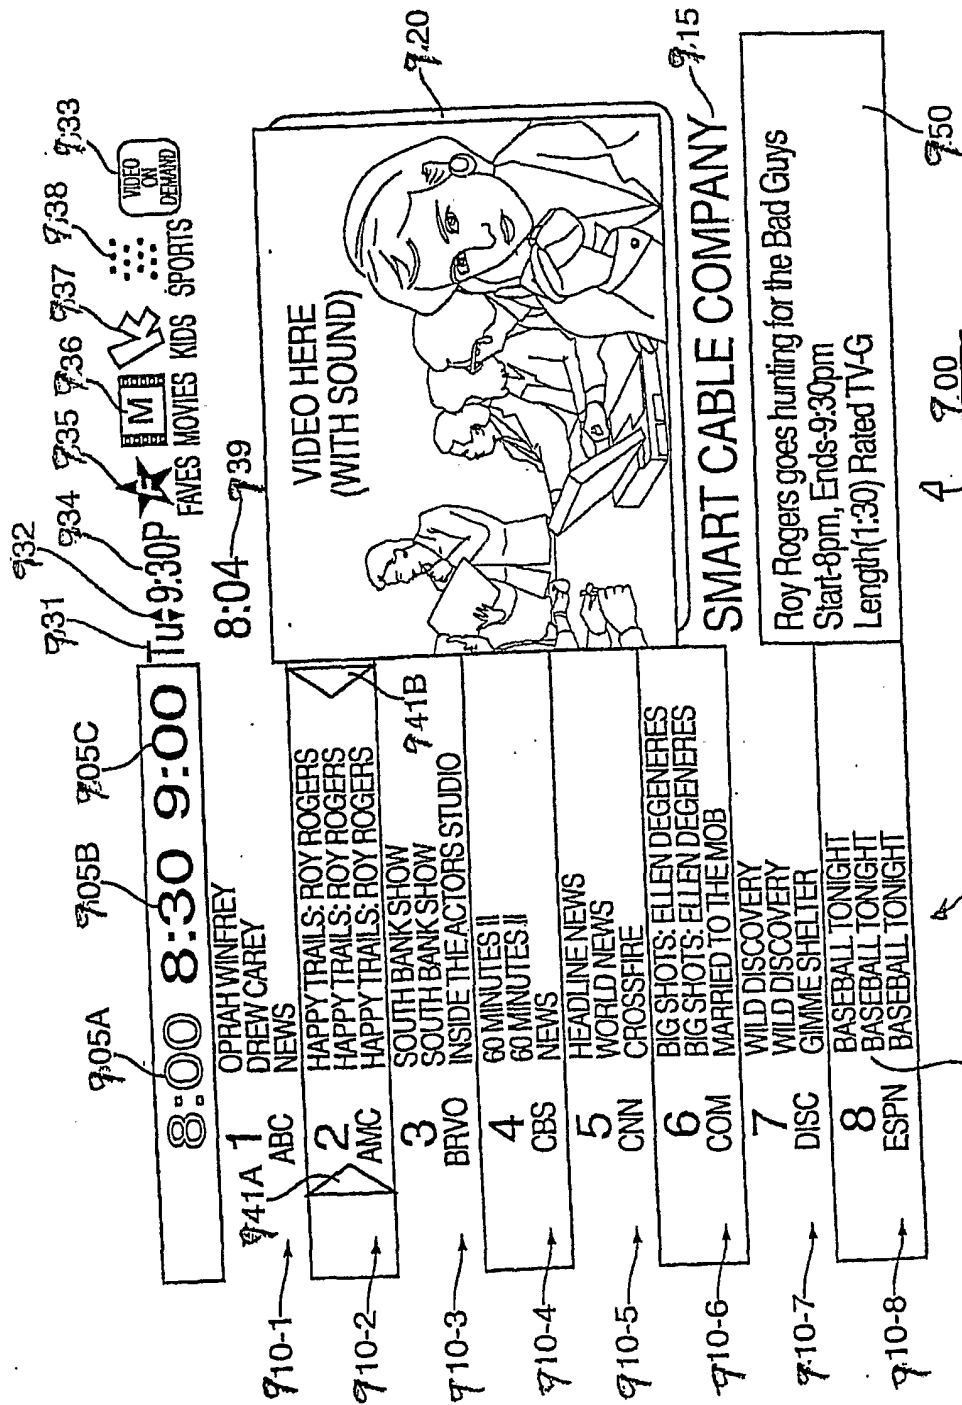 931 932 934 935 936 937 938 933
905A 905B 905C
8:00 8:30 9:00
Tu 9:30P
F
FAVES
M
MOVIES
KIDS
SPORTS
VIDEO
ON
DEMAND
8:04 939
941A
910-1
1
ABC
OPRAH WINFREY
DREW CAREY
NEWS
910-2
2
AMC
HAPPY TRAILS: ROY ROGERS
HAPPY TRAILS: ROY ROGERS
HAPPY TRAILS: ROY ROGERS
941B
910-3
3
BRVO
SOUTH BANK SHOW
SOUTH BANK SHOW
INSIDE THE ACTORS STUDIO
910-4
4
CBS
60 MINUTES II
60 MINUTES II
NEWS
910-5
5
CNN
HEADLINE NEWS
WORLD NEWS
CROSSFIRE
910-6
6
COM
BIG SHOTS: ELLEN DEGENERES
BIG SHOTS: ELLEN DEGENERES
MARRIED TO THE MOB
910-7
7
DISC
WILD DISCOVERY
WILD DISCOVERY
GIMME SHELTER
910-8
8
ESPN
BASEBALL TONIGHT
BASEBALL TONIGHT
BASEBALL TONIGHT
VIDEO HERE
(WITH SOUND)
920
SMART CABLE COMPANY
915
Roy Rogers goes hunting for the Bad Guys
Start-8pm, Ends-9:30pm
Length(1:30) Rated TV-G
950
900